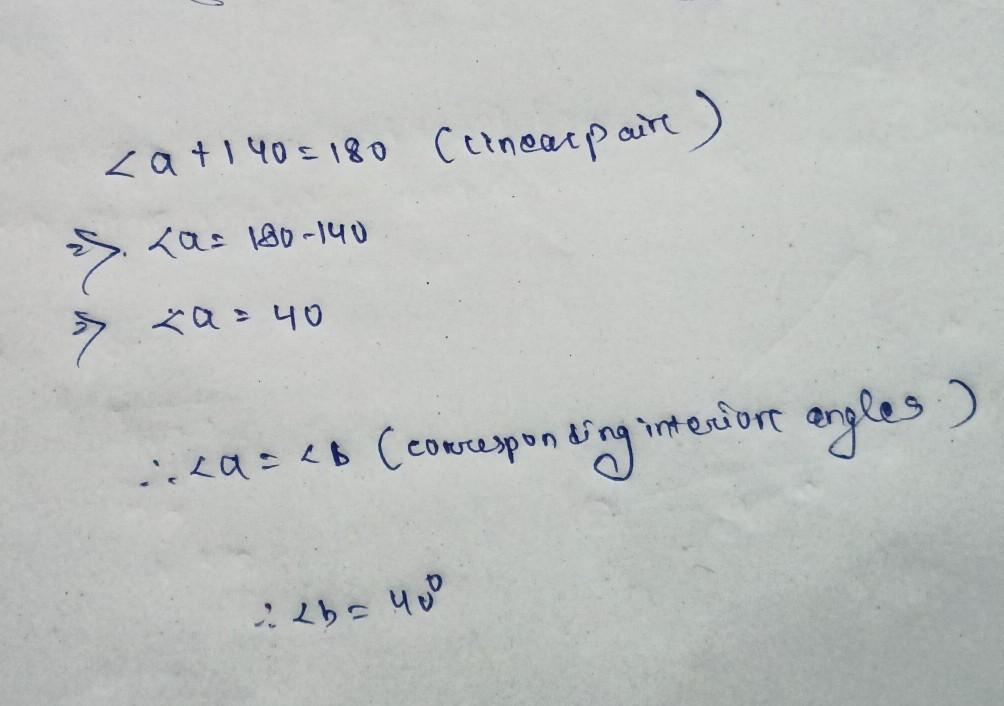 ∠a + 140 = 180 (linearpaire)
⇒ ∠a = 180 - 140
⇒ ∠a = 40
∴ ∠a = ∠b (corresponding interiore angles)
∴ ∠b = 40°